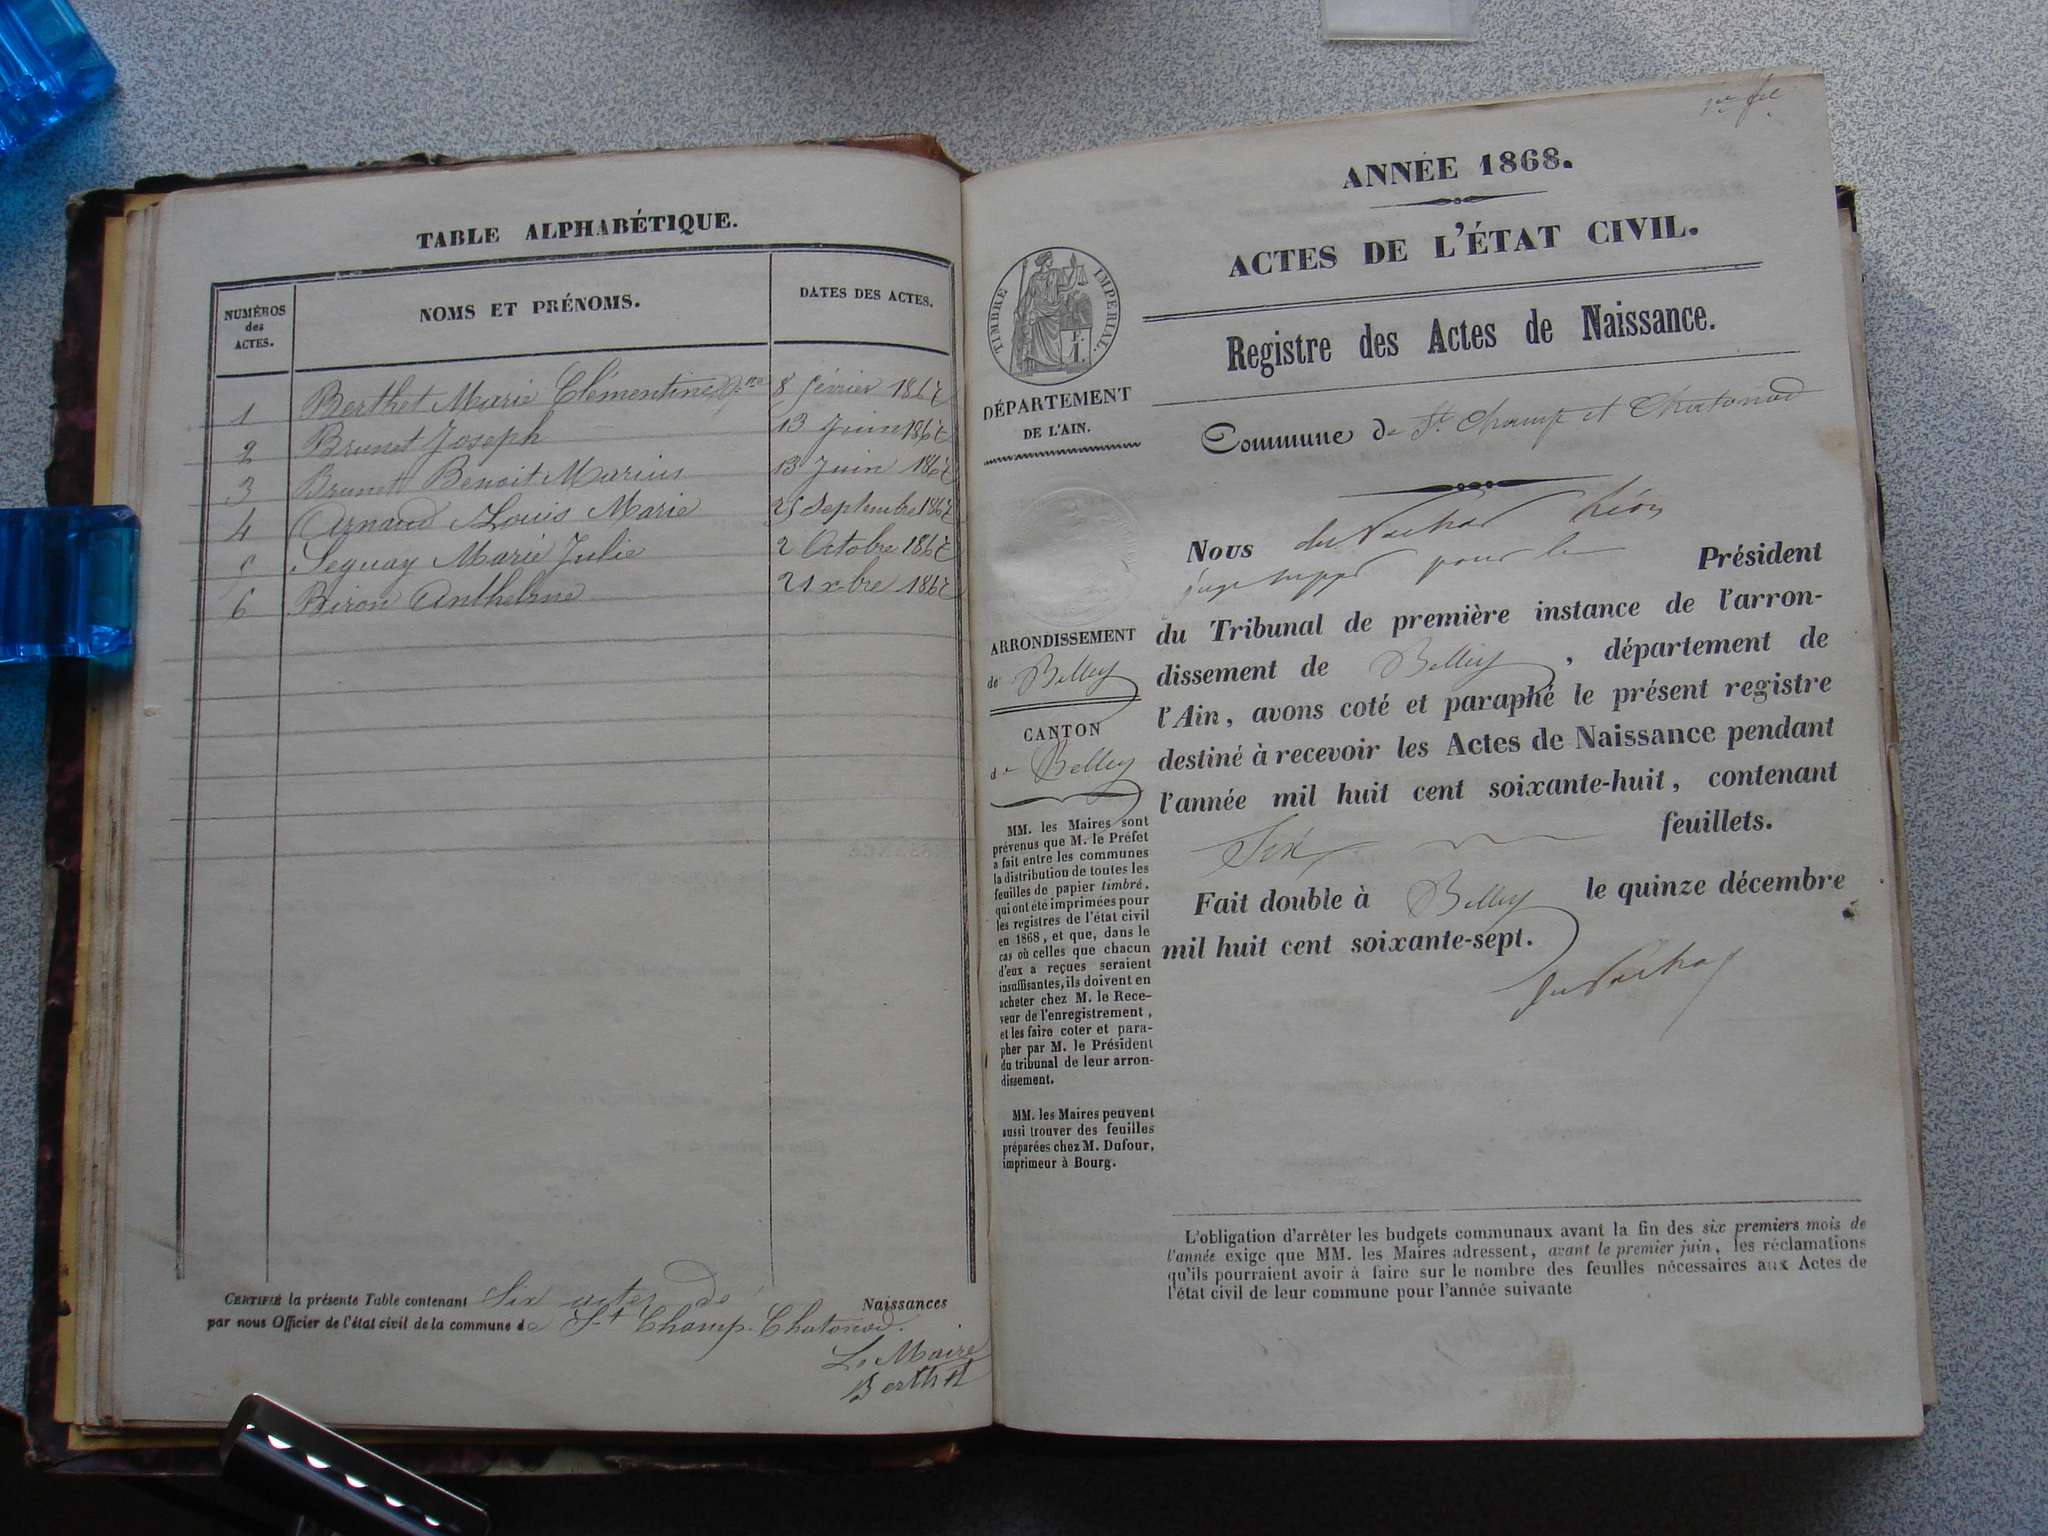 TABLE ALPHABÉTIQUE.
NUMÉROS
des
ACTES.
NOMS ET PRÉNOMS.
DATES DES ACTES.
1 Berthet Marie Clémentine 8 février 1867
2 Brunet Joseph 13 Juin 1867
3 Brunet Benoit Marius 13 Juin 1867
4 Arnaud Louis Marie 25 Septembre 1867
5 Seguay Marie Julie 2 Octobre 1867
6 Biron Anthelme 21 xbre 1867
CERTIFIÉ la présente Table contenant Six actes de Naissances
par nous Officier de l'état civil de la commune de St Champ-Chatonod.
Le Maire
Berthet
ANNÉE 1868.
ACTES DE L'ÉTAT CIVIL.
TIMBRE IMPERIAL.
Registre des Actes de Naissance.
DÉPARTEMENT
DE L'AIN.
Commune de St Champ et Chatonod
ARRONDISSEMENT
de Belley
CANTON
de Belley
MM. les Maires sont
prévenus que M. le Préfet
a fait entre les communes
la distribution de toutes les
feuilles de papier timbré,
qui ont été imprimées pour
les registres de l'état civil
en 1868, et que, dans le
cas où celles que chacun
d'eux a reçues seraient
insuffisantes, ils doivent en
acheter chez M. le Rece-
veur de l'enregistrement,
et les faire coter et para-
pher par M. le Président
du tribunal de leur arron-
dissement.
MM. les Maires peuvent
aussi trouver des feuilles
préparées chez M. Dufour,
imprimeur à Bourg.
Nous Léon
juge suppt pour le Président
du Tribunal de première instance de l'arron-
dissement de Belley, département de
l'Ain, avons coté et paraphé le présent registre
destiné à recevoir les Actes de Naissance pendant
l'année mil huit cent soixante-huit, contenant
Six feuillets.
Fait double à Belley le quinze décembre
mil huit cent soixante-sept.
L'obligation d'arrêter les budgets communaux avant la fin des six premiers mois de
l'année exige que MM. les Maires adressent, avant le premier juin, les réclamations
qu'ils pourraient avoir à faire sur le nombre des feuilles nécessaires aux Actes de
l'état civil de leur commune pour l'année suivante